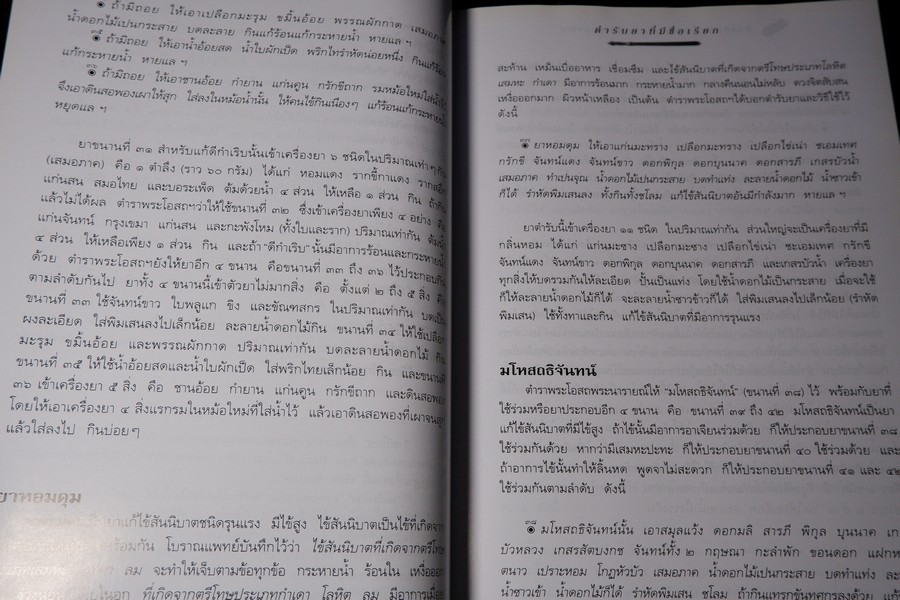 ๓๔ ถ้ามิถอย ให้เอาเปลือกมะรุม ขมิ้นอ้อย พรรณผักกาด เสมอภาค
น้ำดอกไม้เปนกระสาย บดละลาย กินแก้ร้อนแก้กระหายน้ำ หายแล ฯ
๓๕ ถ้ามิถอย ให้เอาน้ำอ้อยสด น้ำใบผักเป็ด พริกไทรำหัดน่อยหนึ่ง กินแก้ร้อน
แก้กระหายน้ำ หายแล ฯ
๓๖ ถ้ามิถอย ให้เอาชานอ้อย กำยาน แก่นคูน กรักขีถาก รมหม้อใหม่ใส่น้ำไว้
จึงเอาดินสอพองเผาให้สุก ใส่ลงในหม้อน้ำนั้น ให้คนไข้กินเนืองๆ แก้ร้อนแก้กระหายน้ำ
หยุดแล ฯ
ยาขนานที่ ๓๑ สำหรับแก้ดีกำเริบนั้นเข้าเครื่องยา ๖ ชนิดในปริมาณเท่าๆ กัน
(เสมอภาค) คือ ๑ ตำลึง (ราว ๖๐ กรัม) ได้แก่ หอมแดง รากขี้กาแดง
แก่นสน สมอไทย และบอระเพ็ด ต้มด้วยน้ำ ๔ ส่วน ให้เหลือ ๑ ส่วน กิน ถ้ากิน
แล้วไม่ได้ผล ตำราพระโอสถฯว่าให้ใช้ขนานที่ ๓๒ ซึ่งเข้าเครื่องยาเพียง ๔ อย่าง คือ
แก่นจันทน์ กรุงเขมา แก่นสน และกะพังโหม (ทั้งใบและราก) ปริมาณเท่ากัน ต้มน้ำ
๔ ส่วน ให้เหลือเพียง ๑ ส่วน กิน และถ้า “ดีกำเริบ” นั้นมีอาการร้อนและกระหายน้ำ
ด้วย ตำราพระโอสถฯยังให้ยาอีก ๔ ขนาน คือขนานที่ ๓๓ ถึง ๓๖ ไว้ประกอบกิน
ตามลำดับกันไป ยาทั้ง ๔ ขนานนี้เข้าตัวยาไม่มากสิ่ง คือ ตั้งแต่ ๒ ถึง ๕ สิ่ง คือ
ขนานที่ ๓๓ ใช้จันทน์ขาว ใบพลูแก ขิง และขัณฑสกร ในปริมาณเท่ากัน บดเป็น
ผงละเอียด ใส่พิมเสนลงไปเล็กน้อย ละลายน้ำดอกไม้กิน ขนานที่ ๓๔ ให้ใช้เปลือก
มะรุม ขมิ้นอ้อย และพรรณผักกาด ปริมาณเท่ากัน บดละลายน้ำดอกไม้ กิน
ขนานที่ ๓๕ ให้ใช้น้ำอ้อยสดและน้ำใบผักเป็ด ใส่พริกไทยเล็กน้อย กิน และขนานที่
๓๖ เข้าเครื่องยา ๕ สิ่ง คือ ชานอ้อย กำยาน แก่นคูน กรักขีถาก และดินสอพอง
โดยให้เอาเครื่องยา ๔ สิ่งแรกรมในหม้อใหม่ที่ใส่น้ำไว้ แล้วเอาดินสอพองที่เผาจนสุก
แล้วใส่ลงไป กินบ่อยๆ
ยาหอมดุม
ยาแก้ไข้สันนิบาตชนิดรุนแรง มีไข้สูง ไข้สันนิบาตเป็นไข้ที่เกิดจาก
ร้อมกัน โบราณแพทย์บันทึกไว้ว่า ไข้สันนิบาตที่เกิดจากตรีโทษ
ลม จะทำให้เจ็บตามข้อทุกข้อ กระหายน้ำ ร้อนใน เหงื่อออก
ที่เกิดจากตรีโทษประเภทกำเดา โลหิต ลม มีอาการเมื่อย
ตำรับยาที่มีชื่อเรียก
สะท้าน เหม็นเบื่ออาหาร เซื่องซึม และไข้สันนิบาตที่เกิดจากตรีโทษประเภทโลหิต
เสมหะ กำเดา มีอาการร้อนมาก กระหายน้ำมาก กลางคืนนอนไม่หลับ ดวงจิตสับสน
เหงื่อออกมาก ผิวหน้าเหลือง เป็นต้น ตำราพระโอสถฯได้บอกตำรับยาและวิธีใช้ไว้
ดังนี้
๓๗ ยาหอมดุม ให้เอาแก่นมะทราง เปลือกมะทราง เปลือกไข่เน่า ชเอมเทศ
กรักขี จันทน์แดง จันทน์ขาว ดอกพิกุล ดอกบุนนาค ดอกสารภี เกสรบัวน้ำ
เสมอภาค ทำเปนจุณ น้ำดอกไม้เปนกระสาย บดทำแท่ง ละลายน้ำดอกไม้ น้ำซาวเข้า
ก็ได้ รำหัดพิมเสนลง ทั้งกินทั้งชโลม แก้ไข้สันนิบาตอันมีกำลังมาก หายแล ฯ
ยาตำรับนี้เข้าเครื่องยา ๑๑ ชนิด ในปริมาณเท่ากัน ส่วนใหญ่จะเป็นเครื่องยาที่มี
กลิ่นหอม ได้แก่ แก่นมะซาง เปลือกมะซาง เปลือกไข่เน่า ชะเอมเทศ กรักขี
จันทน์แดง จันทน์ขาว ดอกพิกุล ดอกบุนนาค ดอกสารภี และเกสรบัวน้ำ เครื่องยา
ทุกสิ่งให้บดรวมกันให้ละเอียด ปั้นเป็นแท่ง โดยใช้น้ำดอกไม้เป็นกระสาย เมื่อจะใช้
ก็ให้ละลายน้ำดอกไม้ก็ได้ จะละลายน้ำซาวข้าวก็ได้ ใส่พิมเสนลงไปเล็กน้อย (รำหัด
พิมเสน) ใช้ทั้งทาและกิน แก้ไข้สันนิบาตที่มีอาการรุนแรง
มโหสถธิจันทน์
ตำราพระโอสถพระนารายณ์ให้ “มโหสถธิจันทน์” (ขนานที่ ๓๘) ไว้ พร้อมกับยาที่
ใช้ร่วมหรือยาประกอบอีก ๔ ขนาน คือ ขนานที่ ๓๙ ถึง ๔๒ มโหสถธิจันทน์เป็นยา
แก้ไข้สันนิบาตที่มีไข้สูง ถ้าไข้นั้นมีอาการอาเจียนร่วมด้วย ก็ให้ประกอบยาขนานที่ ๓๙
ใช้ร่วมกันด้วย หากว่ามีเสมหะปะทะ ก็ให้ประกอบยาขนานที่ ๔๐ ใช้ร่วมด้วย และ
ถ้าอาการไข้นั้นทำให้ลิ้นหด พูดจาไม่สะดวก ก็ให้ประกอบยาขนานที่ ๔๑ และ ๔๒
ใช้ร่วมกันตามลำดับ ดังนี้
๓๘ มโหสถธิจันทน์นั้น เอาสมุลแว้ง ดอกมลิ สารภี พิกุล บุนนาค เก
บัวหลวง เกสรสัตบงกช จันทน์ทั้ง ๒ กฤษณา กะลำพัก ขอนดอก แฝกห
ตนาว เปราะหอม โกฏหัวบัว เสมอภาค น้ำดอกไม้เปนกระสาย บดทำแท่ง ละ
น้ำซาวเข้า น้ำดอกไม้ก็ได้ รำหัดพิมเสน ชโลม ถ้ากินแทรกขัณฑกรลงด้วย แก้